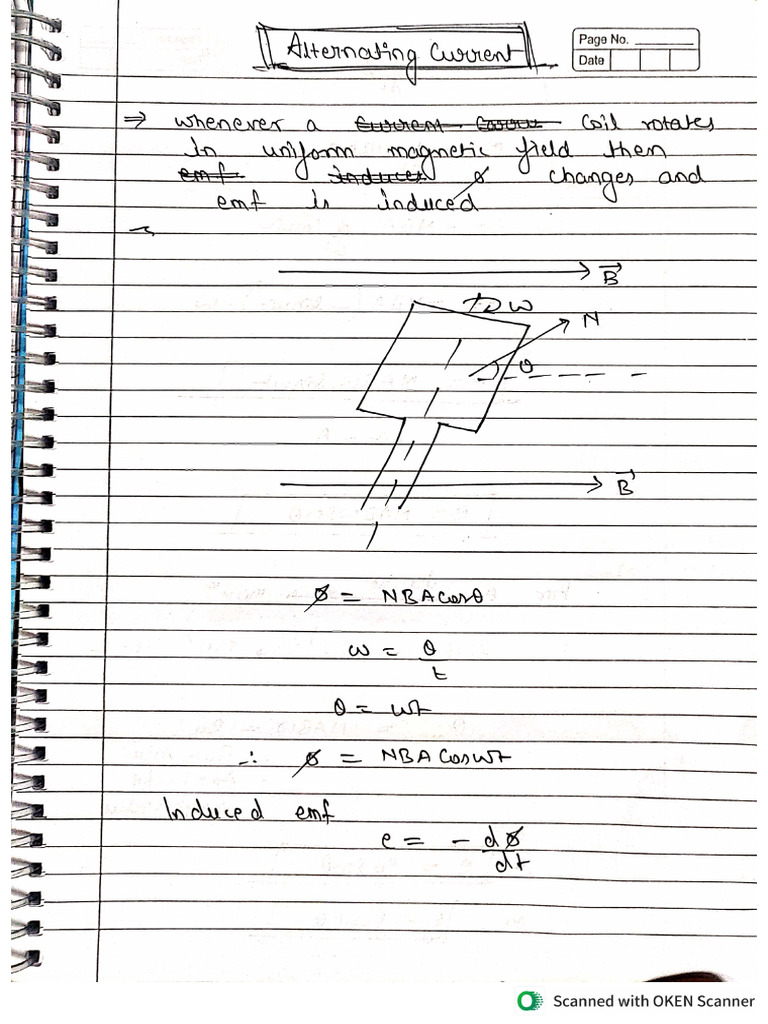 Alternating Current
Page No.
Date
⇒ whenever a current coil rotates
In uniform magnetic field then
emf induces ϕ changes and
emf is induced
B⃗
ω
N
θ
B⃗
ϕ = NBA cosθ
ω = θ/t
θ = ωt
∴ ϕ = NBA cosωt
Induced emf
e = - dϕ/dt
Scanned with OKEN Scanner